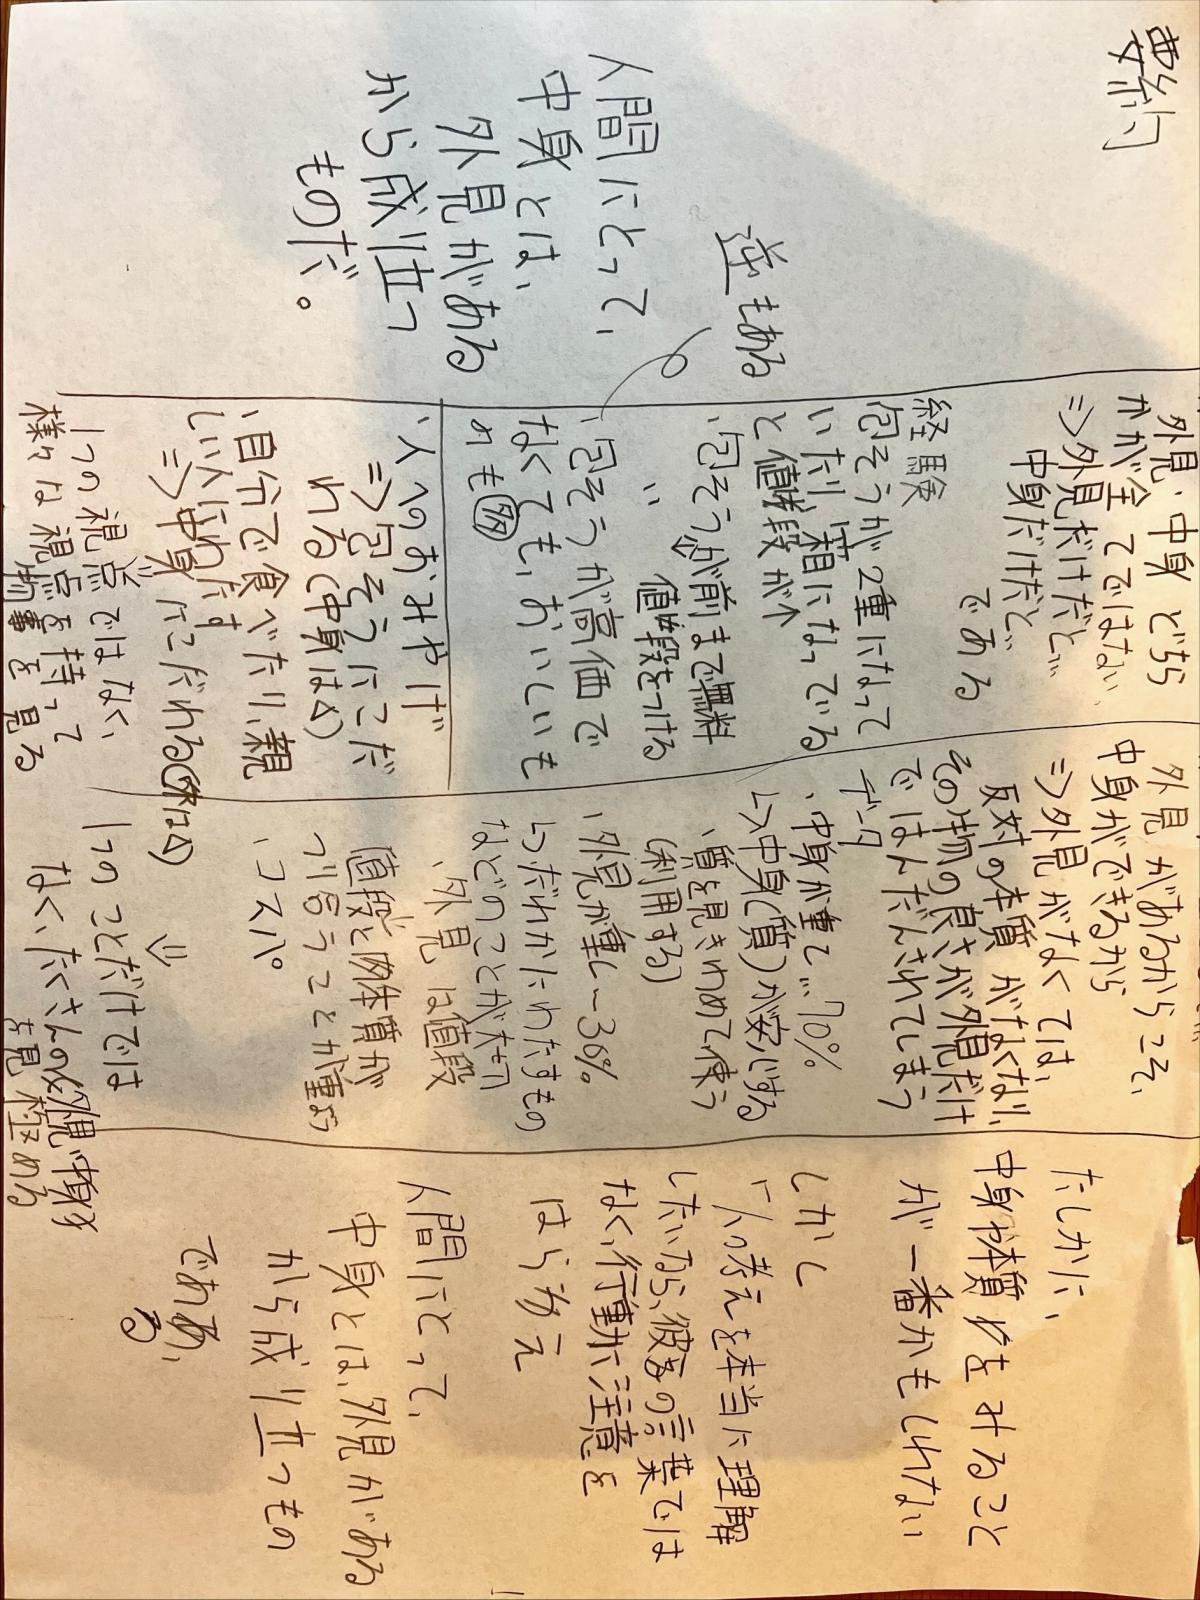 要約
逆もある
人間にとって、
中身とは、
外見がある
から成り立つ
ものだ。
外見・中身どちら
かが全てではない
⇒外見だけだと
中身だけだと
である
経験
包そうが2重になって
いたり、箱になってでる
と値段が↑
、包そうが前まで無料
〃 値段をつける
、包そうが高価で
なくても、おいしいも
のも多
、人へのおみやげ
⇒包そうにこだ
わる(中身は△)
、自分で食べたり、親
しい人にわたす
⇒中身にこだわる(外は△)
1つの視点ではなく、
様々な視点を持って
物事を見る
外見があるからこそ、
中身ができるから
⇒外見がなくては、
反対の本質がなくなり、
その物の良さが外見だけ
ではんだんされてしまう
データ
、中身が重で…70%
↳中身(質)が安心する
、質を見きわめて使う
(利用する)
、外見が重し〜30%
↳だれかにわたすもの
などのことが大切
、外見は値段
値段と中身の質が
つり合うことが重よう
、コスパ。
⇓
1つのことだけでは
なく、たくさんの外見や中身
を見極める
たしかに、
中身や本質をみること
が一番かもしれない
しかし
「人の考えを本当に理解
したいなら、彼らの言葉では
なく、行動に注意を
はらうえ
人間にとって、
中身とは、外見がある
から成り立つもの
である